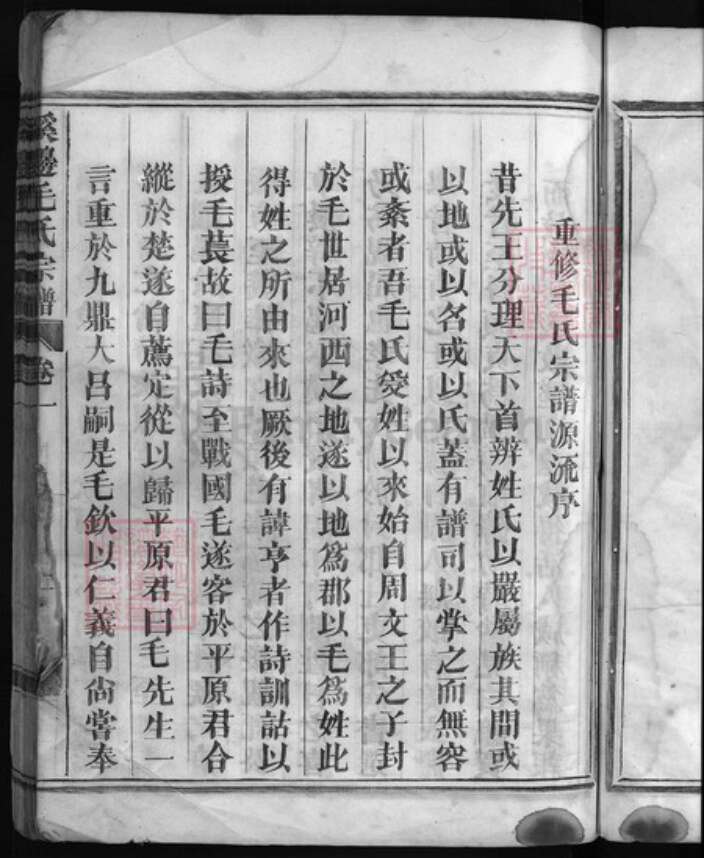 重修毛氏宗譜源流序
昔先王分理天下首辨姓氏以嚴屬族其間或
以地或以名或以氏蓋有譜司以掌之而無容
或紊者吾毛氏受姓以來始自周文王之子封
於毛世居河西之地遂以地為郡以毛為姓此
得姓之所由來也厥後有諱亨者作詩訓詁以
授毛萇故曰毛詩至戰國毛遂客於平原君合
縱於楚遂自薦定從以歸平原君曰毛先生一
言重於九鼎大呂嗣是毛欽以仁義自尚嘗奉
溪邊毛氏宗譜 卷一